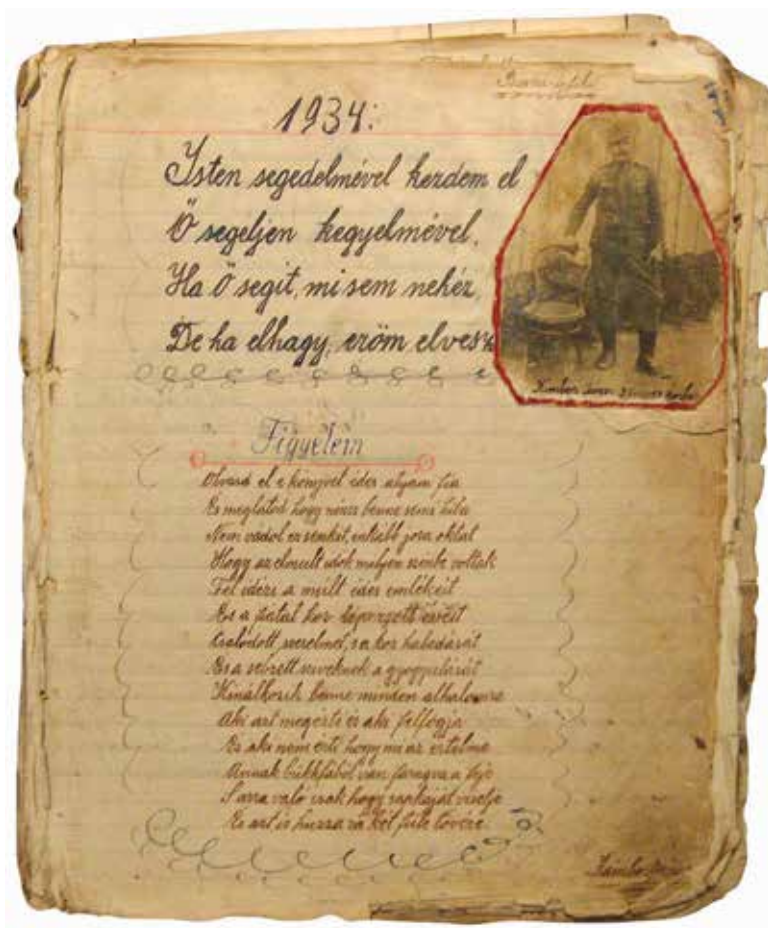 1934:
Isten segedelmével kezdem el
Ő segeljen kegyelmével,
Ha Ő segit, mi sem nehéz,
De ha elhagy, eröm elvesz
Figyelem
Olvasd el e könyvet édes atyám fia
És meglátod hogy nincs benne semi hiba
Nem vádol ez senkit, inkább jora oktat
Hogy az elmult idők milyen szinbe voltak
Fel idézi a mult édes emlékeit
És a fiatal kor éveit
Csalodott szerelmet, s a kor haladását
És a sebzett sziveknek a gyogyulását
Kinálkozik benne minden alkalomra
Aki azt megérti és aki felfogja
És aki nem érti hogy mi az értelme
Annak bükkfából van faragva a feje
S arra való csak hogy sapkáját viselje
És azt is huzza rá két füle tövére